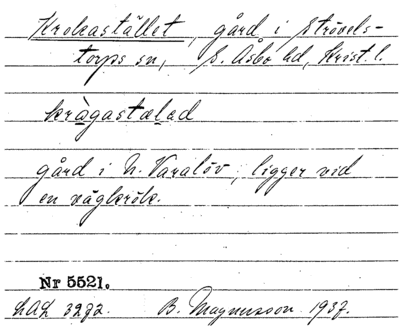 Krokastället, gård i Strövels-
torps sn, S. Åsbo hd, Krist. l.
kràgastæläd
gård i N. Varalöv; ligger vid
en vägkrök.
Nr 5521.
LAL 3272. B. Magnusson 1937.